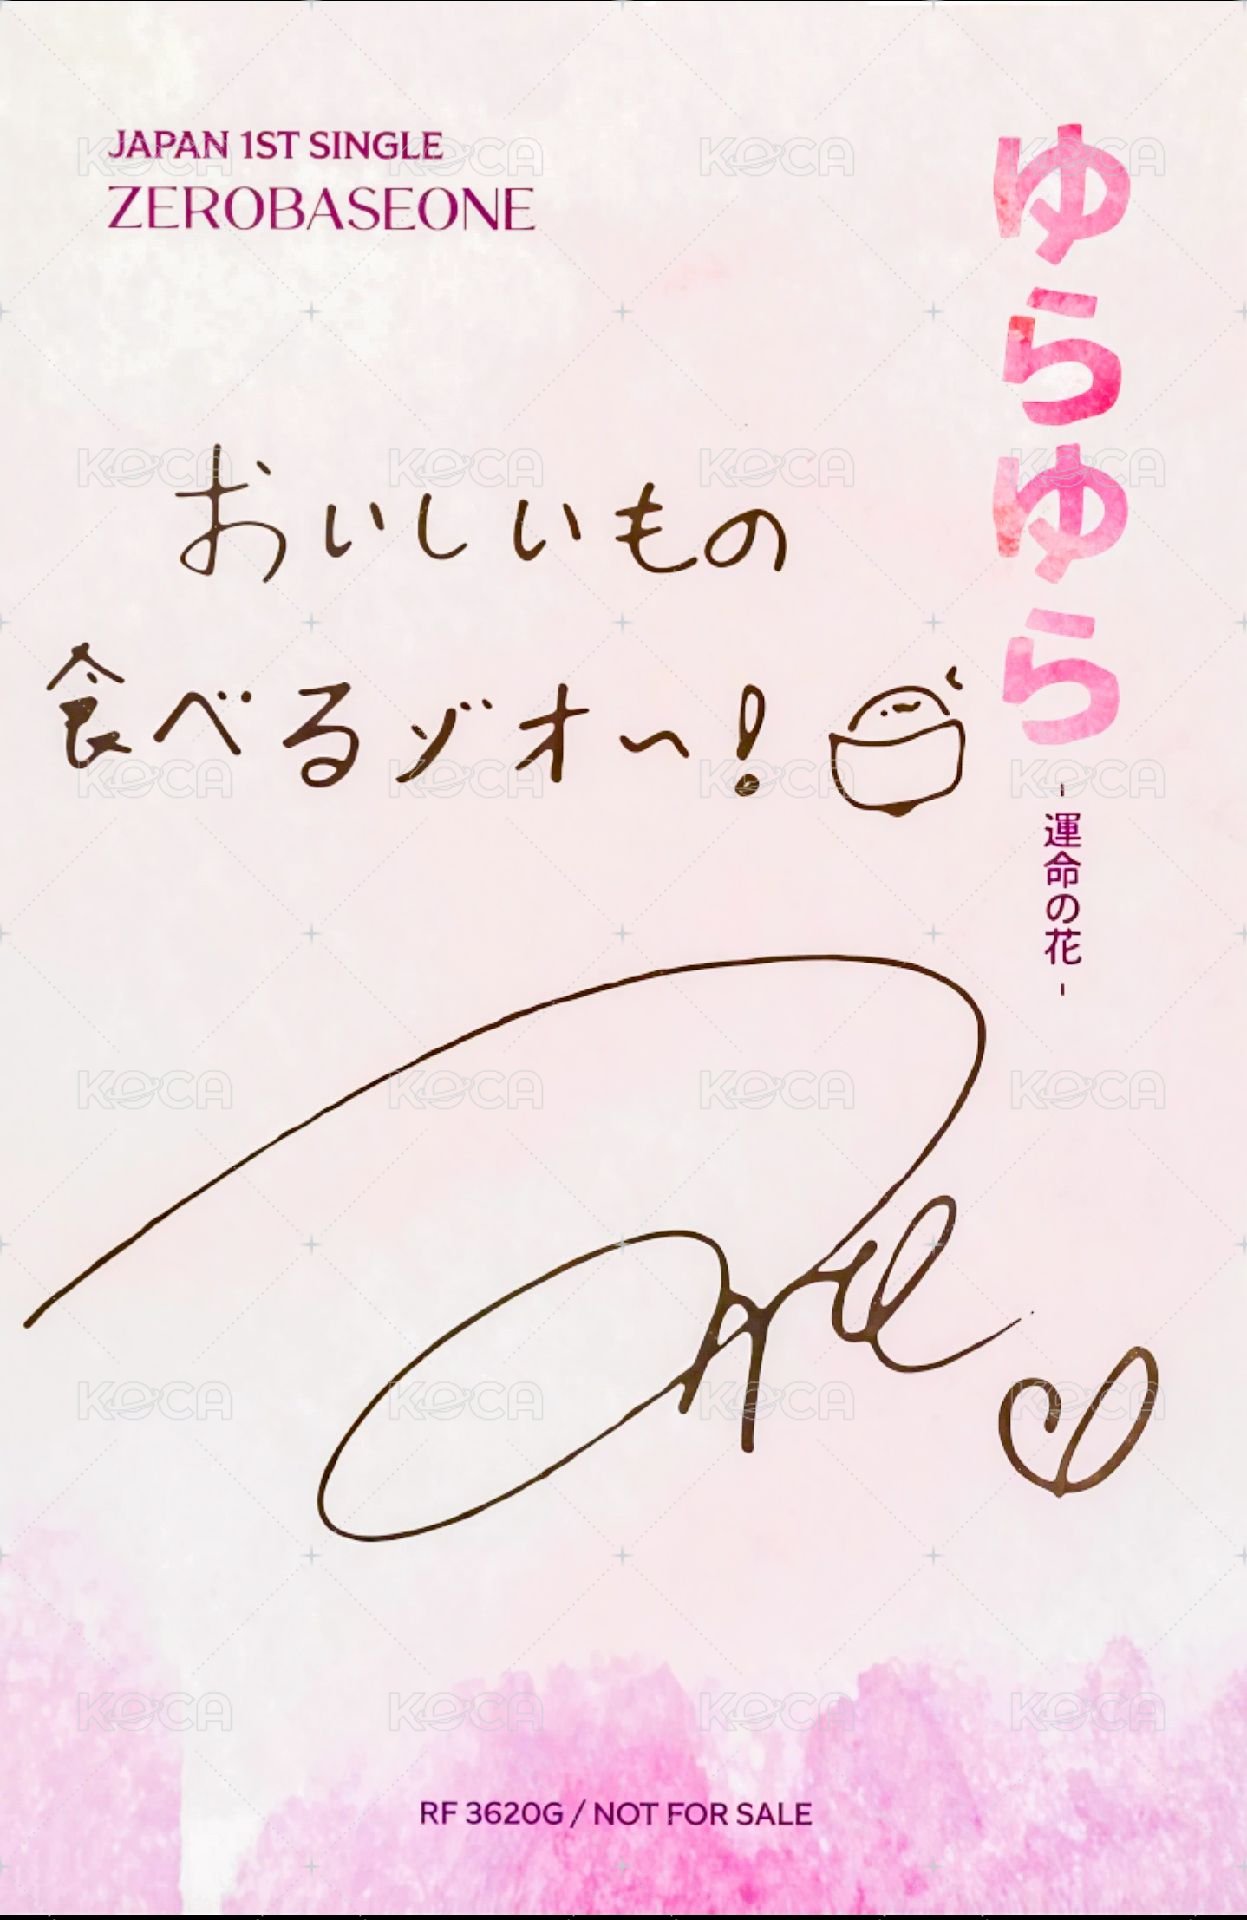 JAPAN 1ST SINGLE
ZEROBASEONE
ゆらゆら
-運命の花-
おいしいもの
食べるゾオ〜!
RF 3620G / NOT FOR SALE
KOCA